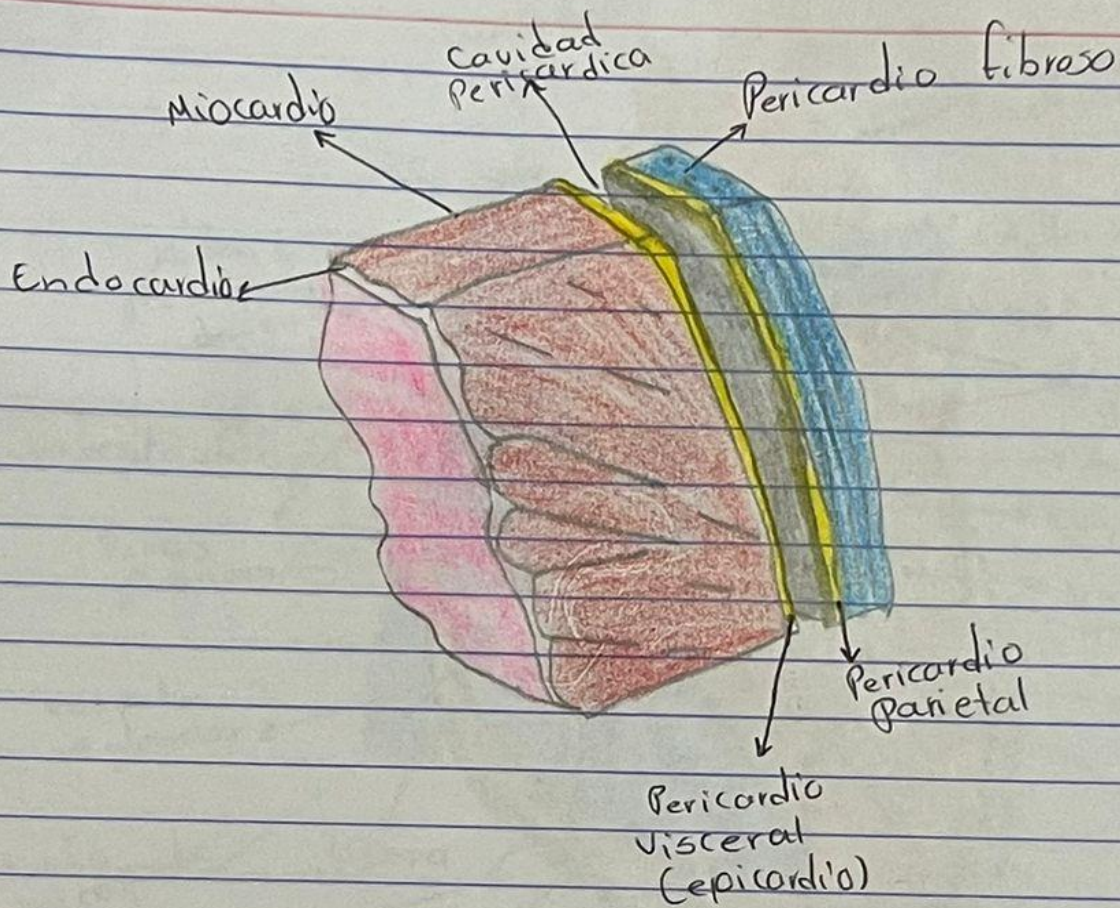 Cavidad
Pericardica
Pericardio fibroso
Miocardio
Endocardio
Pericardio
parietal
Pericardio
visceral
(epicardio)